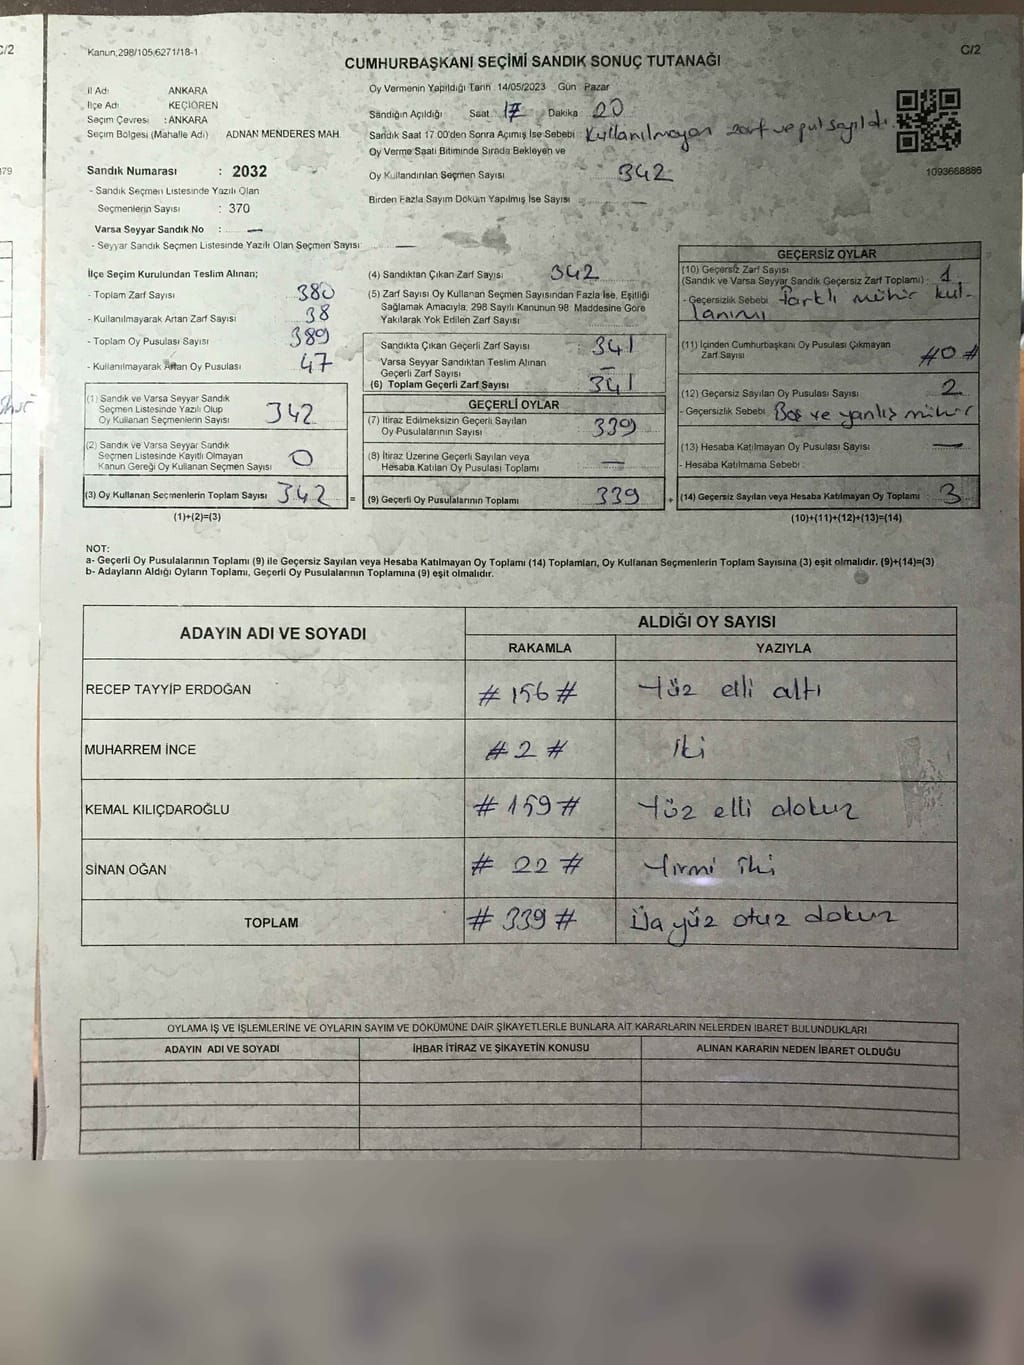 C/2
Kanun,298/105,6271/18-1
C/2
CUMHURBAŞKANI SEÇİMİ SANDIK SONUÇ TUTANAĞI
İl Adı ANKARA
İlçe Adı KEÇİÖREN
Seçim Çevresi : ANKARA
Seçim Bölgesi (Mahalle Adı) ADNAN MENDERES MAH.
Oy Vermenin Yapıldığı Tarih 14/05/2023 Gün Pazar
Sandığın Açıldığı Saat 17 Dakika 20
Sandık Saat 17.00'den Sonra Açılmış İse Sebebi Kullanılmayan zarf ve pul sayıldı.
Oy Verme Saati Bitiminde Sırada Bekleyen ve
Oy Kullandırılan Seçmen Sayısı 342
Birden Fazla Sayım Döküm Yapılmış İse Sayısı —
1093668886
379
Sandık Numarası : 2032
- Sandık Seçmen Listesinde Yazılı Olan
Seçmenlerin Sayısı : 370
Varsa Seyyar Sandık No : —
- Seyyar Sandık Seçmen Listesinde Yazılı Olan Seçmen Sayısı —
İlçe Seçim Kurulundan Teslim Alınan;
- Toplam Zarf Sayısı 380
- Kullanılmayarak Artan Zarf Sayısı 38
- Toplam Oy Pusulası Sayısı 389
- Kullanılmayarak Artan Oy Pusulası 47
(1) Sandık ve Varsa Seyyar Sandık
Seçmen Listesinde Yazılı Olup
Oy Kullanan Seçmenlerin Sayısı 342
(2) Sandık ve Varsa Seyyar Sandık
Seçmen Listesinde Kayıtlı Olmayan
Kanun Gereği Oy Kullanan Seçmen Sayısı 0
(3) Oy Kullanan Seçmenlerin Toplam Sayısı 342 =
(1)+(2)=(3)
(4) Sandıktan Çıkan Zarf Sayısı 342
(5) Zarf Sayısı Oy Kullanan Seçmen Sayısından Fazla İse, Eşitliği
Sağlamak Amacıyla, 298 Sayılı Kanunun 98. Maddesine Göre
Yakılarak Yok Edilen Zarf Sayısı
Sandıkta Çıkan Geçerli Zarf Sayısı 341
Varsa Seyyar Sandıktan Teslim Alınan
Geçerli Zarf Sayısı —
(6) Toplam Geçerli Zarf Sayısı 341
GEÇERLİ OYLAR
(7) İtiraz Edilmeksizin Geçerli Sayılan
Oy Pusulalarının Sayısı 339
(8) İtiraz Üzerine Geçerli Sayılan veya
Hesaba Katılan Oy Pusulası Toplamı —
(9) Geçerli Oy Pusulalarının Toplamı 339 +
GEÇERSİZ OYLAR
(10) Geçersiz Zarf Sayısı
(Sandık ve Varsa Seyyar Sandık Geçersiz Zarf Toplamı) : 1
- Geçersizlik Sebebi farklı mühür kul-
lanımı
(11) İçinden Cumhurbaşkanı Oy Pusulası Çıkmayan
Zarf Sayısı #0#
(12) Geçersiz Sayılan Oy Pusulası Sayısı 2
- Geçersizlik Sebebi Boş ve yanlış mühür
(13) Hesaba Katılmayan Oy Pusulası Sayısı —
- Hesaba Katılmama Sebebi
(14) Geçersiz Sayılan veya Hesaba Katılmayan Oy Toplamı 3
(10)+(11)+(12)+(13)=(14)
NOT:
a- Geçerli Oy Pusulalarının Toplamı (9) ile Geçersiz Sayılan veya Hesaba Katılmayan Oy Toplamı (14) Toplamları, Oy Kullanan Seçmenlerin Toplam Sayısına (3) eşit olmalıdır. (9)+(14)=(3)
b- Adayların Aldığı Oyların Toplamı, Geçerli Oy Pusulalarının Toplamına (9) eşit olmalıdır.
ADAYIN ADI VE SOYADI ALDIĞI OY SAYISI
RAKAMLA YAZIYLA
RECEP TAYYİP ERDOĞAN #156# Yüz elli altı
MUHARREM İNCE #2# iki
KEMAL KILIÇDAROĞLU #159# Yüz elli dokuz
SİNAN OĞAN #22# Yirmi iki
TOPLAM #339# Üç yüz otuz dokuz
OYLAMA İŞ VE İŞLEMLERİNE VE OYLARIN SAYIM VE DÖKÜMÜNE DAİR ŞİKAYETLERLE BUNLARA AİT KARARLARIN NELERDEN İBARET BULUNDUKLARI
ADAYIN ADI VE SOYADI İHBAR İTİRAZ VE ŞİKAYETİN KONUSU ALINAN KARARIN NEDEN İBARET OLDUĞU